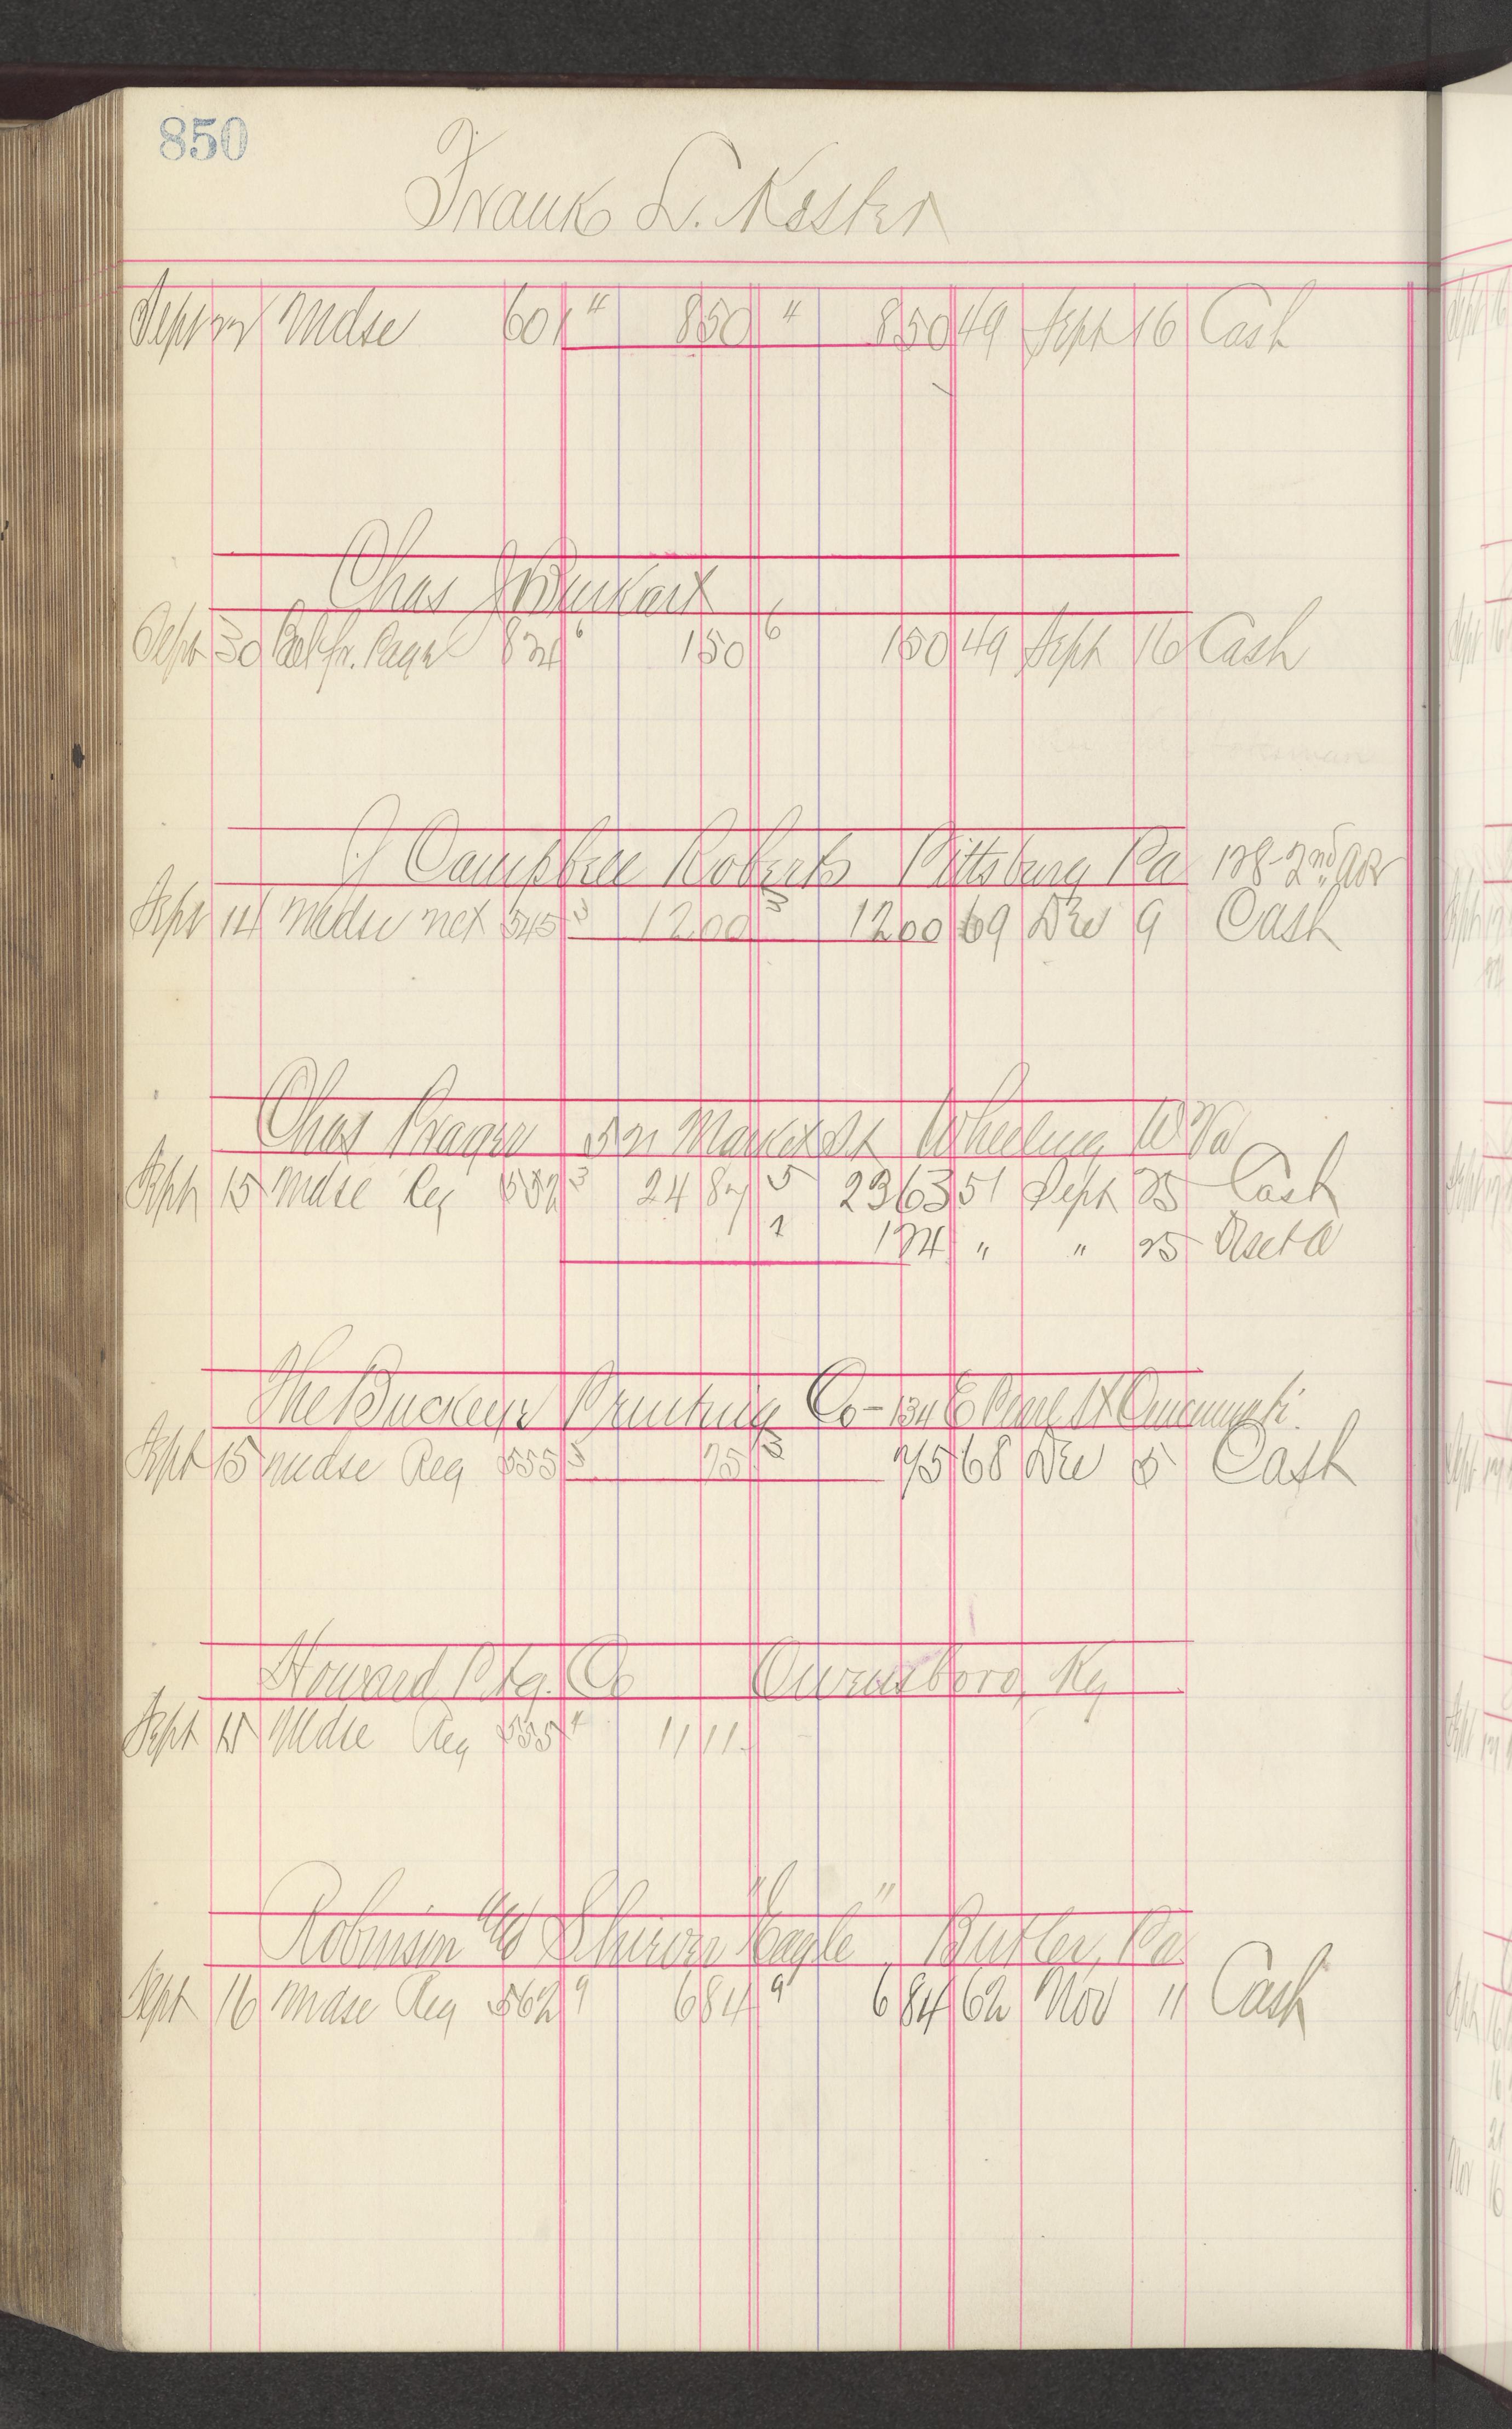 850
Frank L. Kester
Sept 22 Mdse 601 4 8 50 4 8 50 49 Sept 16 Cash
Chas J Burkart
Sept 30 Bal fr. Page 824 6 1 50 6 1 50 49 Sept 16 Cash
J Campbell Roberts Pittsburg Pa 128-2nd Ave
Sept 14 Mdse net 545 3 12 00 3 12 00 69 Dec 9 Cash
Chas Prager Market St Wheeling W Va
Sept 15 Mdse Reg 552 3 24 87 5 23 63 51 Sept 25 Cash
1 1 24 " " 25 Disct a
The Buckeye Printing Co - 134 E Pearl St Cincinnati.
Sept 15 Mdse Reg 555 3 75 3 75 68 Dec 5 Cash
Howard Ptg. Co Owensboro, Ky
Sept 15 Mdse Reg 555 4 11 11
Robinson Shiever "Eagle" Butler, Pa
Sept 16 Mdse Reg 562 9 6 84 9 6 84 62 Nov 11 Cash